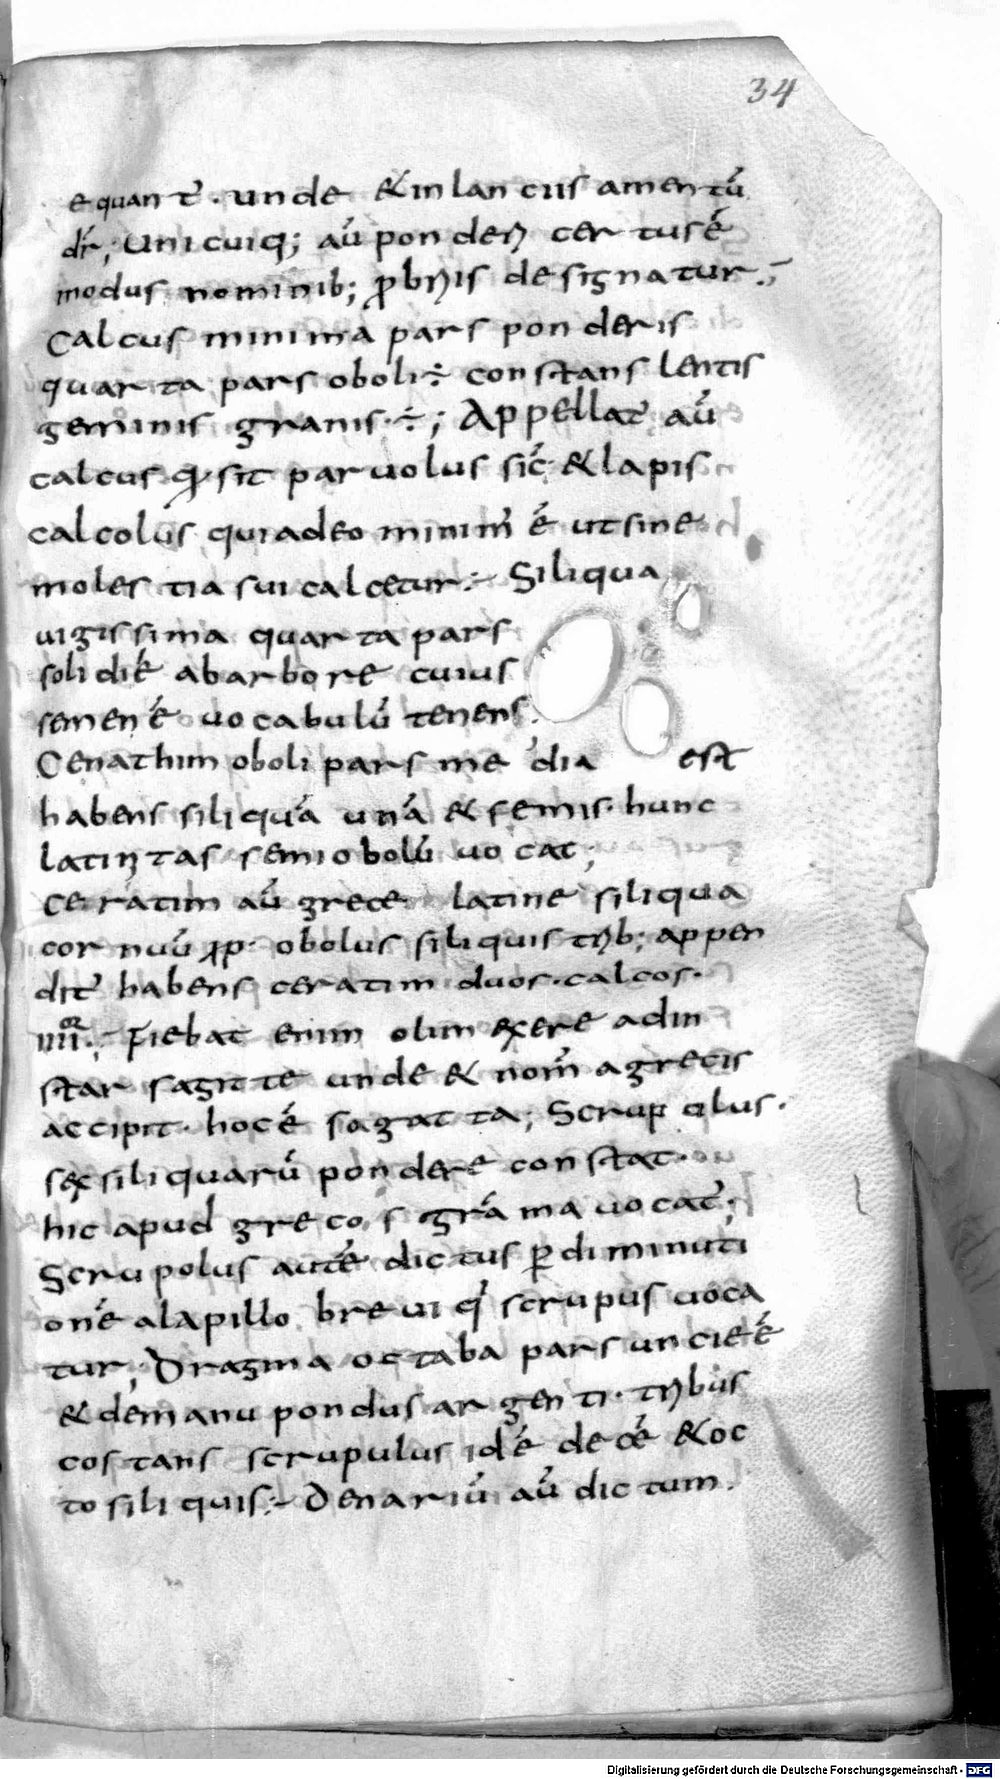 34
equant̄. unde &in lanciis amentū
dr̄; Unicuiq; aū ponderi certus ē
modus nominib; p̄briis designatur.;
Calcus minima pars ponderis
quarta pars oboli ÷ constans lentis
geminis granis ÷; Appellat̄ aū
calcus qđ sit paruolus sic̄ & lapis
calcolus qui adeo minim̄ ē ut sine
molestia sui calcetur:- Siliqua
uigissima quarta pars
solidi ē ab arbore cuius
semen ē uocabulū tenens.
Cenathim oboli pars media est
habens siliquā unā & semis. hunc
latinitas semiobolū uocat;
Ceratim aū grece latine siliqua
cornuū ꝓp. obolus siliquis trib; appen
dit̄ habens ceratim duos. calcos.
iiiior.; Fiebat enim olim ex ere ad in
star sagitte unde & nom̄ a grecis
accipit. hoc ē sagatta; Scrupulus.
sex siliquarū pondere constat.
hic apud grecos grāma uocat̄;
Scrupolus autē dictus ꝑ diminuti
onē a lapillo breui qđ scrupus uoca
tur; Dragma octaba pars uncie ē
& demanu pondus argenti. tribus
costans scrupulus id ē decē & oc
to siliquis:- Denariū aū dictum.
Digitalisierung gefördert durch die Deutsche Forschungsgemeinschaft - DFG